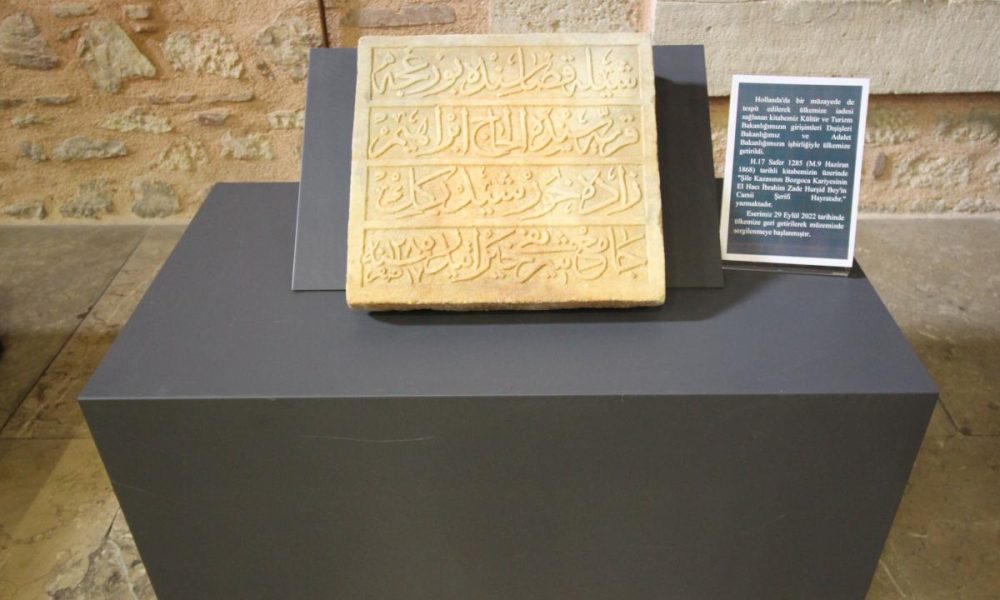 شيله قضاسنده بوزغجه
قريه سنده الحاج ابراهيم
زاده خورشيد بكك
جامع شريف ١٢٨٥
Hollanda'da bir müzayede de
tespit edilerek ülkemize iadesi
sağlanan kitabemiz Kültür ve Turizm
Bakanlığımızın girişimleri Dışişleri
Bakanlığımız ve Adalet
Bakanlığımızın işbirliğiyle ülkemize
getirildi.
H.17 Safer 1285 (M.9 Haziran
1868) tarihli kitabemizin üzerinde
"Şile Kazasının Bozgoca Kariyesinin
El Hacı İbrahim Zade Hurşid Bey'in
Camii Şerifi Hayratıdır."
yazmaktadır.
Eserimiz 29 Eylül 2022 tarihinde
ülkemize geri getirilerek müzemizde
sergilenmeye başlanmıştır.